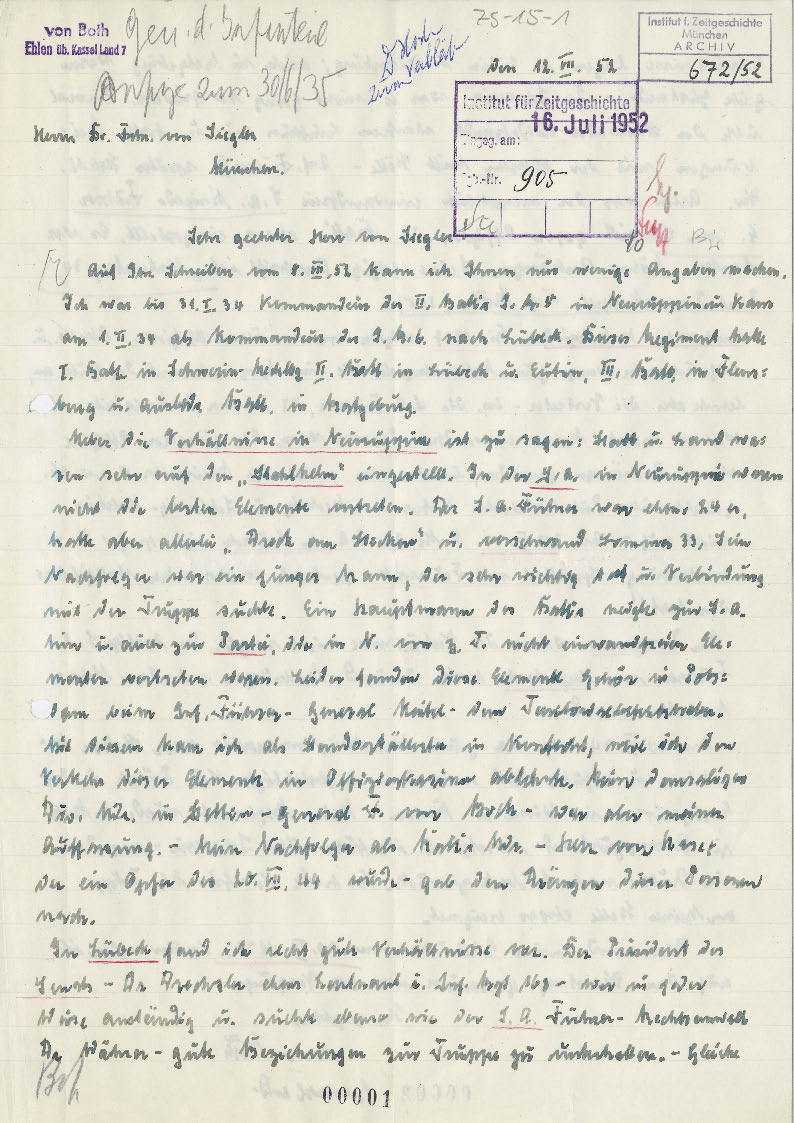 von Both
Ehlen üb. Kassel Land 7
Gen. d. Infanterie
Anfrage zum 30/6/35
75-15-1
Institut f. Zeitgeschichte
München
ARCHIV
672/52
den 12. VII. 52
Institut für Zeitgeschichte
16. Juli 1952
Eingeg. am:
Tgb.-Nr. 905
Herrn Dr. Frhr. von Siegler
München.
Sehr geehrter Herr von Siegler
Auf Ihr Schreiben vom 8. VII. 52 kann ich Ihnen nur wenige Angaben machen.
Ich war bis 31. I. 34 Kommandeur des II. Batls I. R. 5 in Neuruppin u. kam
am 1. II. 34 als Kommandeur des I. R. 6. nach Lübeck. Dieses Regiment hatte
I. Batl. in Schwerin-Mecklbg II. Batl in Lübeck u. Eutin, III. Batl. in Flens=
burg u. Ausbildg Batl. in Ratzeburg.
Ueber die Verhältnisse in Neuruppin ist zu sagen: Stadt u. Land wa=
ren sehr auf den „Stahlhelm" eingestellt. In der S.A. in Neuruppin waren
nicht die besten Elemente vertreten. Der S.A. Führer war ehem. 24 er,
hatte aber allerlei „Dreck am Stecken" u. verschwand Sommer 33. Sein
Nachfolger war ein junger Mann, der sehr wichtig tat u. Verbindung
mit der Truppe suchte. Ein Hauptmann des Batls neigte zur S.A.
hin u. auch zur Partei, die in N. von z. T. nicht einwandfreien Ele=
menten vertreten waren. Leider fanden diese Elemente Gehör in Pots=
dam beim Inf.-Führer - General Keitel - dem
Mit diesem kam ich als Standortältester in Konflikt, weil ich den
Verkehr dieser Elemente im Offizierkasino ablehnte. Mein damaliger
Div. Kdr. in Stettin - General F. von Bock - war aber meiner
Auffassung. - Mein Nachfolger als Batls Kdr. - Herr von Hase,
der ein Opfer des 20. VII. 44 wurde - gab dem Drängen dieser Personen
nach.
In Lübeck fand ich recht gute Verhältnisse vor. Der Präsident des
Senats - Dr Drechsler ehem. Leutnant i. Inf. Regt 162 - war in jeder
Weise anständig u. suchte ebenso wie der S.A. Führer - Rechtsanwalt
Dr. - gute Beziehungen zur Truppe zu unterhalten. - Gleiche
00001